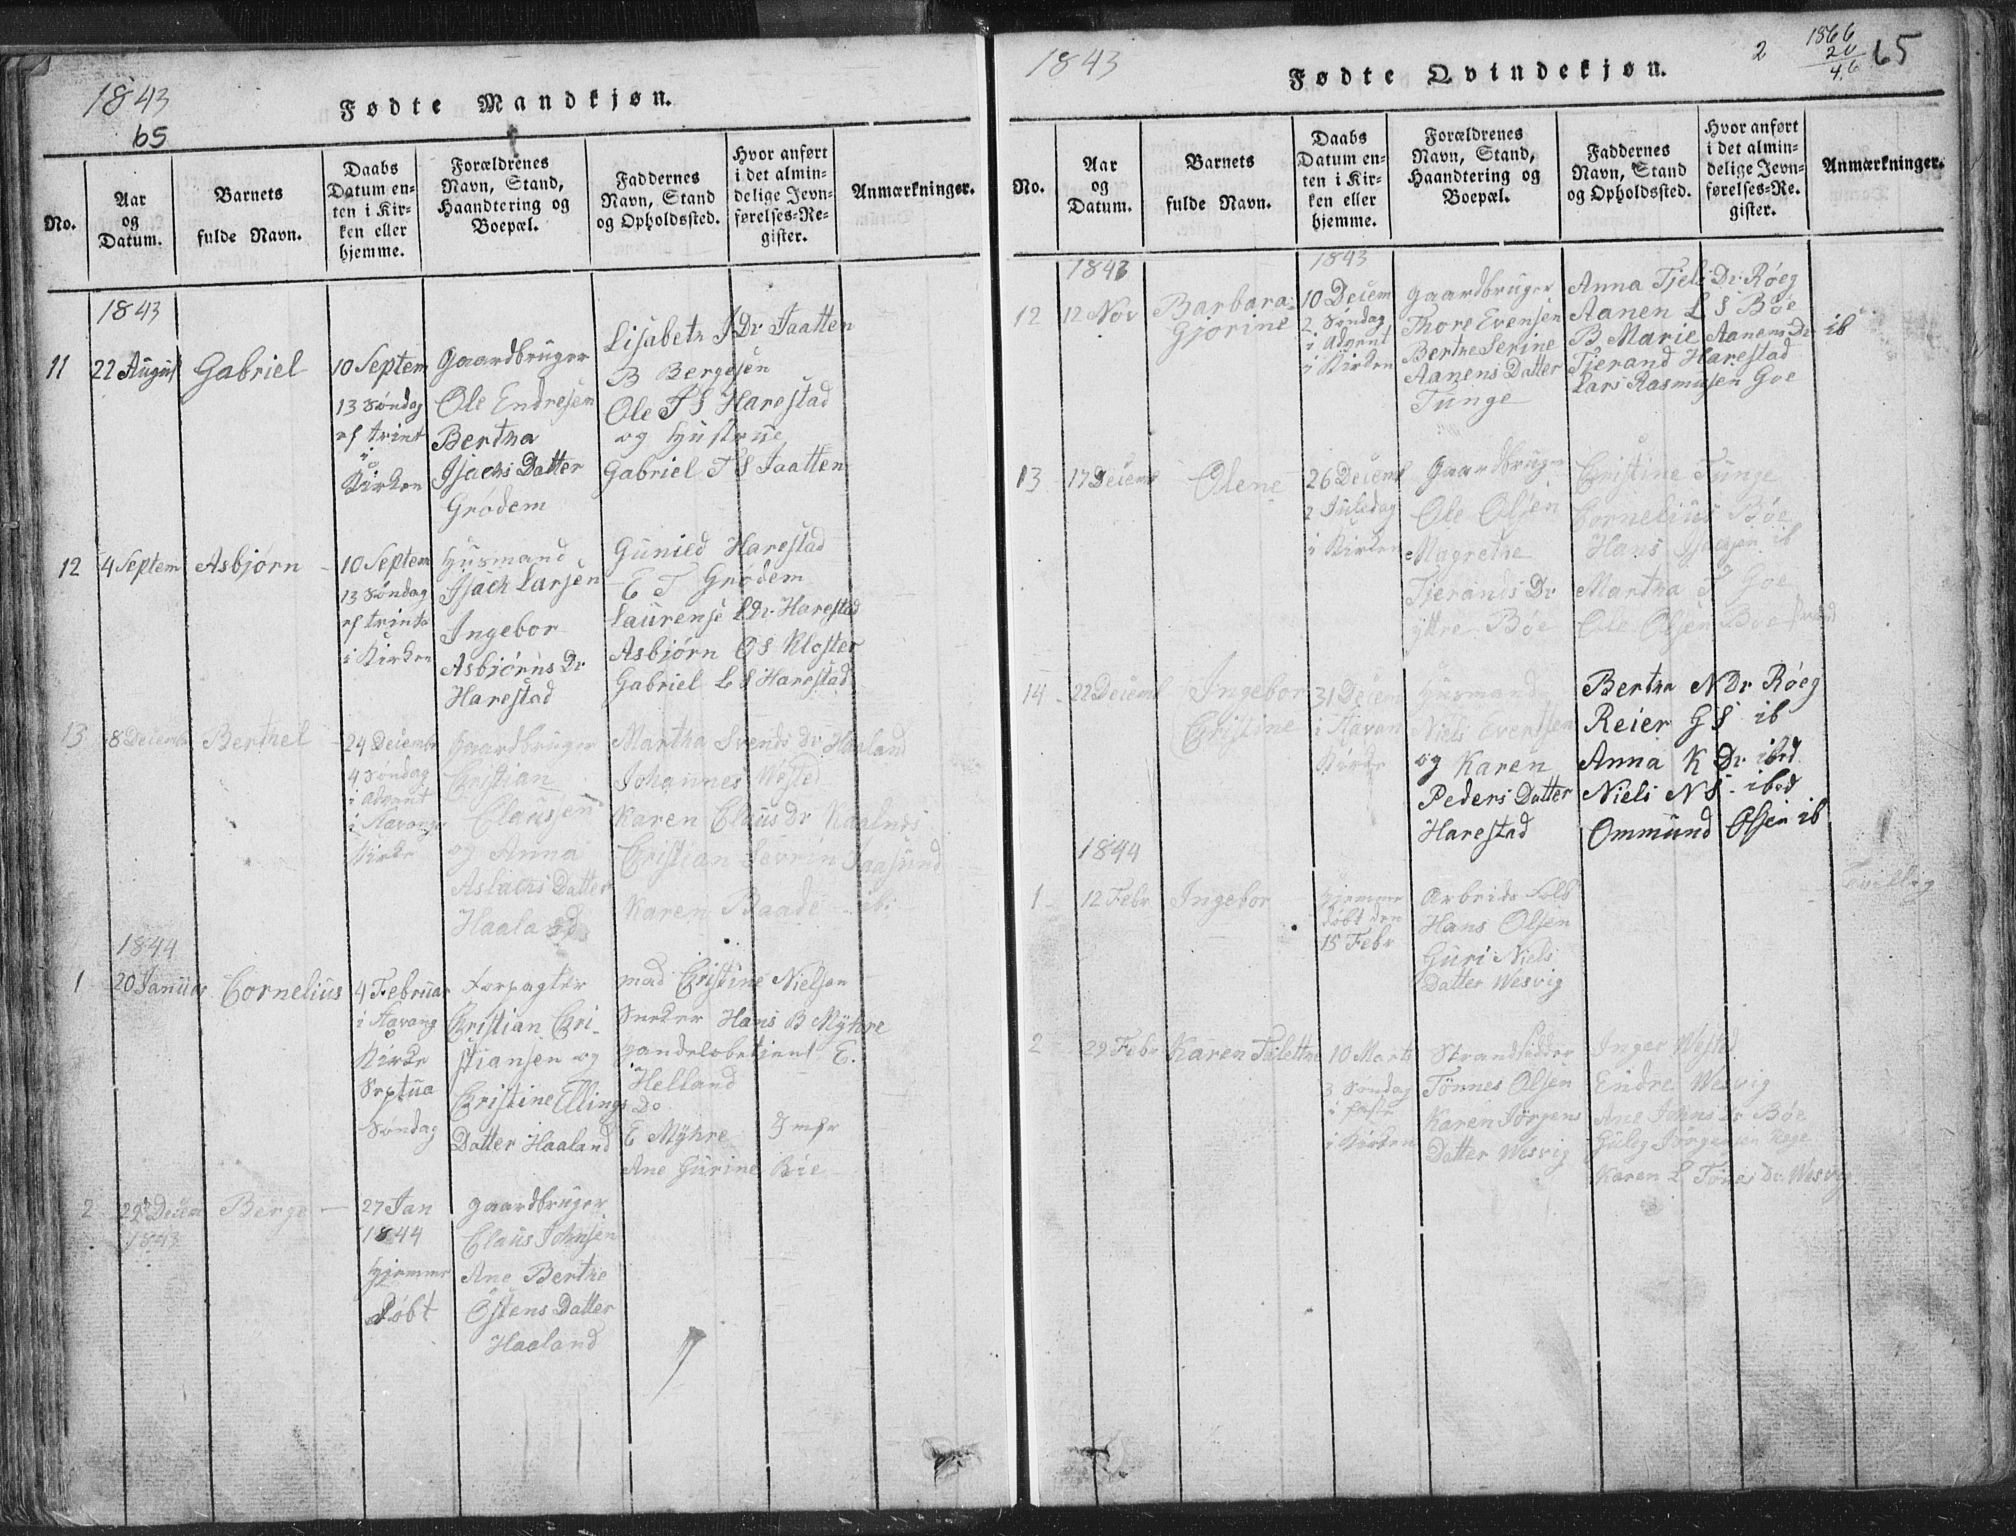 1843
65
Fødte Mandkjøn.
No.
Aar
og
Datum.
Barnets
fulde Navn.
Daabs
Datum en-
ten i Kir-
ken eller
hjemme.
Forældrenes
Navn, Stand,
Haandtering og
Boepæl.
Faddernes
Navn, Stand
og Opholdssted.
Hvor anført
i det almin-
delige Jevn-
førelses-Re-
gister.
Anmærkninger.
1843
11
22 August
Gabriel
10 Septem
13 Søndag
ef trint
i
Kirken
Gaardbruger
Ole Endresen
Bertha
Isachs Datter
Grödem
Lisabeth J Dr Jaatten
B Bergesen
Ole T S Harestad
og Hustrue
Gabriel T S Jaatten
12
4 Septem
Asbjørn
10 Septem
13 Søndag
ef trinta
i Kirken
Husmand
Isach Larsen
Ingebor
Asbjörns Dr
Harestad
Gunild Harestad
E T Grödem
Laurense L Dr Harestad
Asbjørn O S Kloster
Gabriel L S Harestad
13
8 Decembr
Berthel
24 Decembr
4 Søndag
i Advent
i Stavange
Kirke
Gaardbruger
Christian
Clausen
og Anna
Aslachs Datter
Haaland
Martha Svends Dr Haaland
Johannes Wested
Karen Claus Dr
Christian Sevrin
Karen Baade ib:
1844
1
20 Januar
Cornelius
4 Februar
i Stavang
Kirke
Septua
Søndag
Forpagter
Christian Chri-
stiansen og
Christine Ellings
Datter Haaland
mad Christine Nielsen
Hans B Myhre
Handelsbetient E.
Helland
Do
E Myhre Jmfr
Ane Gurine Böe
2
29 Decem
1843
Berge
27 Jan
1844
Hjemme
Döbt
Gaardbruger
Claus Johnsen
Ane Berthe
Östens Datter
Haaland
1843
Fødte Qvindekjøn.
2
1866
20
46
65
No.
Aar
og
Datum.
Barnets
fulde Navn.
Daabs
Datum en-
ten i Kir-
ken eller
hjemme.
Forældrenes
Navn, Stand,
Haandtering og
Boepæl.
Faddernes
Navn, Stand
og Opholdssted.
Hvor anført
i det almin-
delige Jevn-
førelses-Re-
gister.
Anmærkninger.
1843
1843
12
12 Nov
Barbara
Gjorine
10 Decem
2 Søndag
i Advent
i Kirken
Gaardbruger
Thore Evensen
Berthe Serine
Aanens Datter
Tunge
Anna Tjels Dr Röeg
Aanen L S Böe
B Marie Aanens Dr ib
Tjerand Harestad
Lars Rasmusen Goe
13
17 Decemb
Olene
26 Decemb
2 Juledag
i Kirken
Gaardbruger
Ole Olsen
Magrethe
Tjerands Dr
yttre Böe
Christine Tunge
Cornelius Böe
Hans Isachsen ib
Martha T Goe
Ole Olsen Boe
14
22 Decemb
Ingebor
Christine
31 Decem
i Stavan
Kirke
Husmand
Niels Evertsen
og Karen
Peders Datter
Harestad
Berthe N Dr Röeg
Reier G S ib
Anna K Dr ibid
Niels N S ibid
Ommund Olsen ib
1844
1
12 Febr
Ingebor
Hjemme
döbt den
15 Febr
Arbeids Folk
Hans Olsen
Guri Niels
Datter Wesvig
Tvillig
2
29 Febr
Karen Talettne
10 Marts
3 Søndag
i faste
i Kirken
Strandsidder
Tönnes Olsen
Karen Jörgens
Datter Wesvig
Inger Wested
Endre Wesvig
Ane Johns Dr Böe
Guleg Jörgensen
Karen L Tönes Dr Wesvig